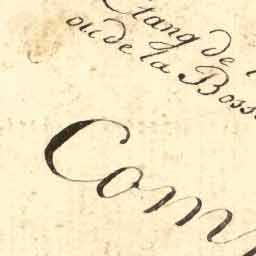 Etang de
ou de la Boss
Com